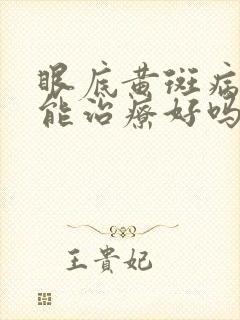 眼底黄斑病
能治疗好吗
王貴妃